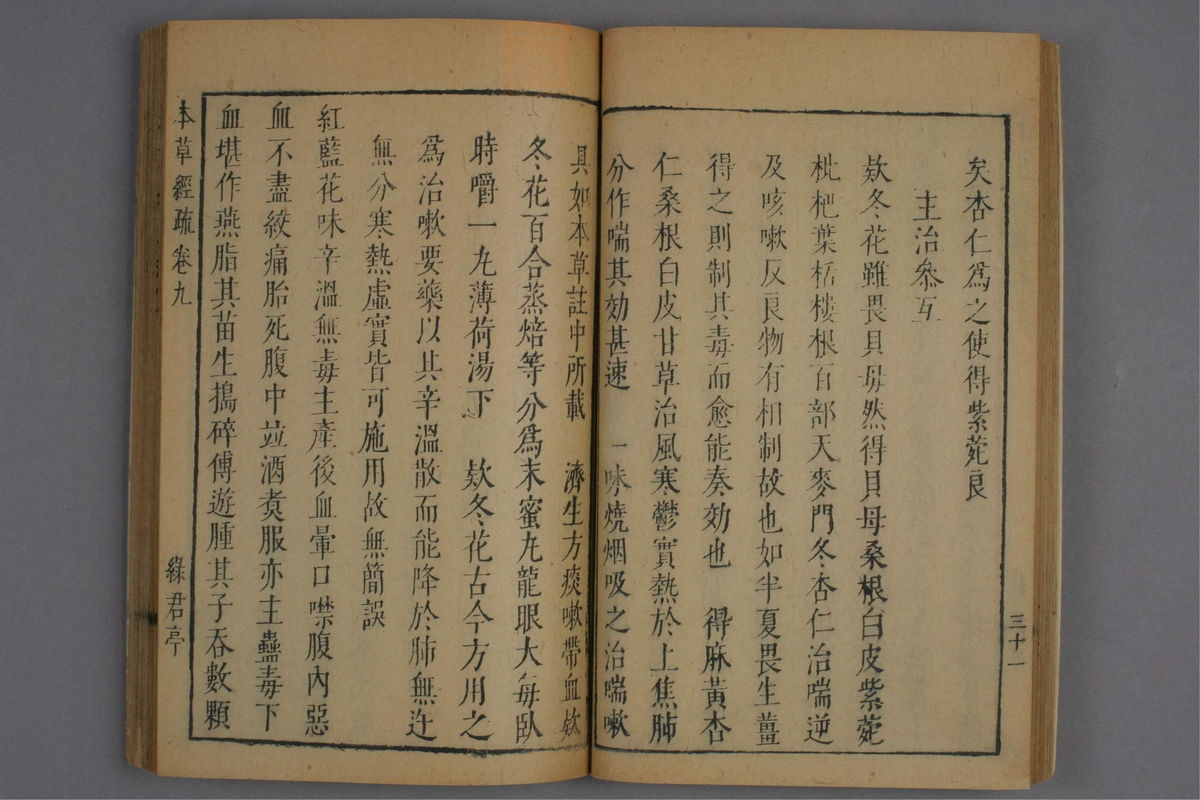 矣杏仁爲之使得紫菀良
主治叅互
欵冬花雖畏貝母然得貝母桑根白皮紫菀
枇杷葉栝樓根百部天麥門冬杏仁治喘逆
及咳嗽反良物有相制故也如半夏畏生薑
得之則制其毒而愈能奏効也　得麻黃杏
仁桑根白皮甘草治風寒鬱實熱於上焦肺
分作喘其効甚速　一味燒烟吸之治喘嗽
具如本草註中所載　濟生方痰嗽帶血欵
冬花百合蒸焙等分爲末蜜丸龍眼大每臥
時嚼一丸薄荷湯下　欵冬花古今方用之
爲治嗽要藥以其辛溫散而能降於肺無迕
無分寒熱虛實皆可施用故無簡誤
紅藍花味辛溫無毒主產後血暈口噤腹內惡
血不盡絞痛胎死腹中竝酒煑服亦主蠱毒下
血堪作燕脂其苗生搗碎傅遊腫其子吞數顆
三十一
本草經疏卷九
綠君亭